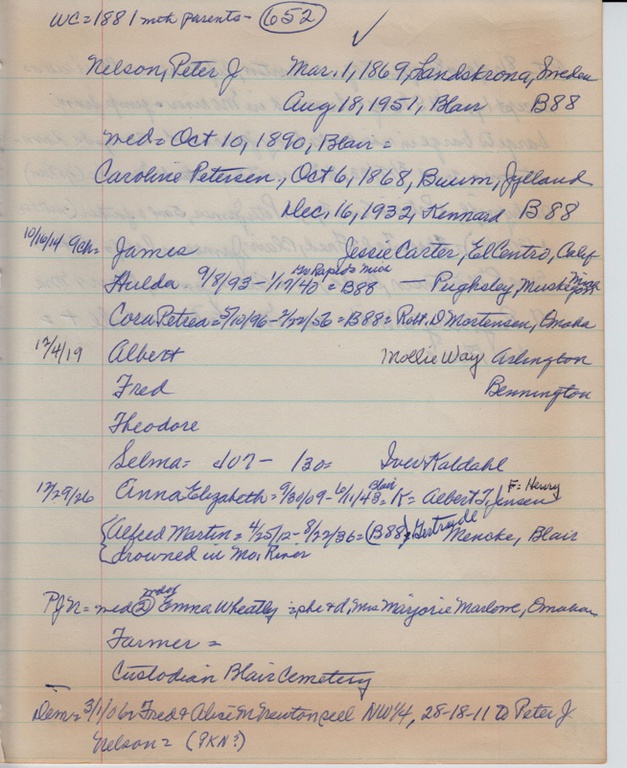 WC=1881 with parents- 652 ✓
Nelson, Peter J. Mar. 1, 1869, Landskrona, Sweden
Aug 18, 1951, Blair B88
med= Oct 10, 1890, Blair =
Caroline Petersen, Oct 6, 1868, Buum, Jylland
Dec, 16, 1932, Kennard B88
10/16/14 9ch= James Jessie Carter, El Centro, Calif
Gr Rapids Mich
Hulda 9/8/93-1/17/42=B88 — Pughsley, Mich
Cora Petrea=5/10/96-2/22/56=B88=Robt. D Mortensen, Omaha
12/4/19 Albert Mollie Way Arlington
Fred Bennington
Theodore
Selma= d07- /30= Iver Kaldahl
12/29/26 Anna Elizabeth=9/30/09-6/1/43=Blair=K= Albert T. Jensen F=Henry
{Alfred Martin=4/25/12-8/22/36=(B88)=Gertrude Mencke, Blair
{drowned in Mo, River
PJN=med ② Emma Wheatley =she+d, Mrs Marjorie Marlowe, Omaha
Farmer=
Custodian Blair Cemetery
Item=3/1/06=Fred & Alice M Newton sell NW¼, 28-18-11 to Peter J
Nelson= (PKN?)